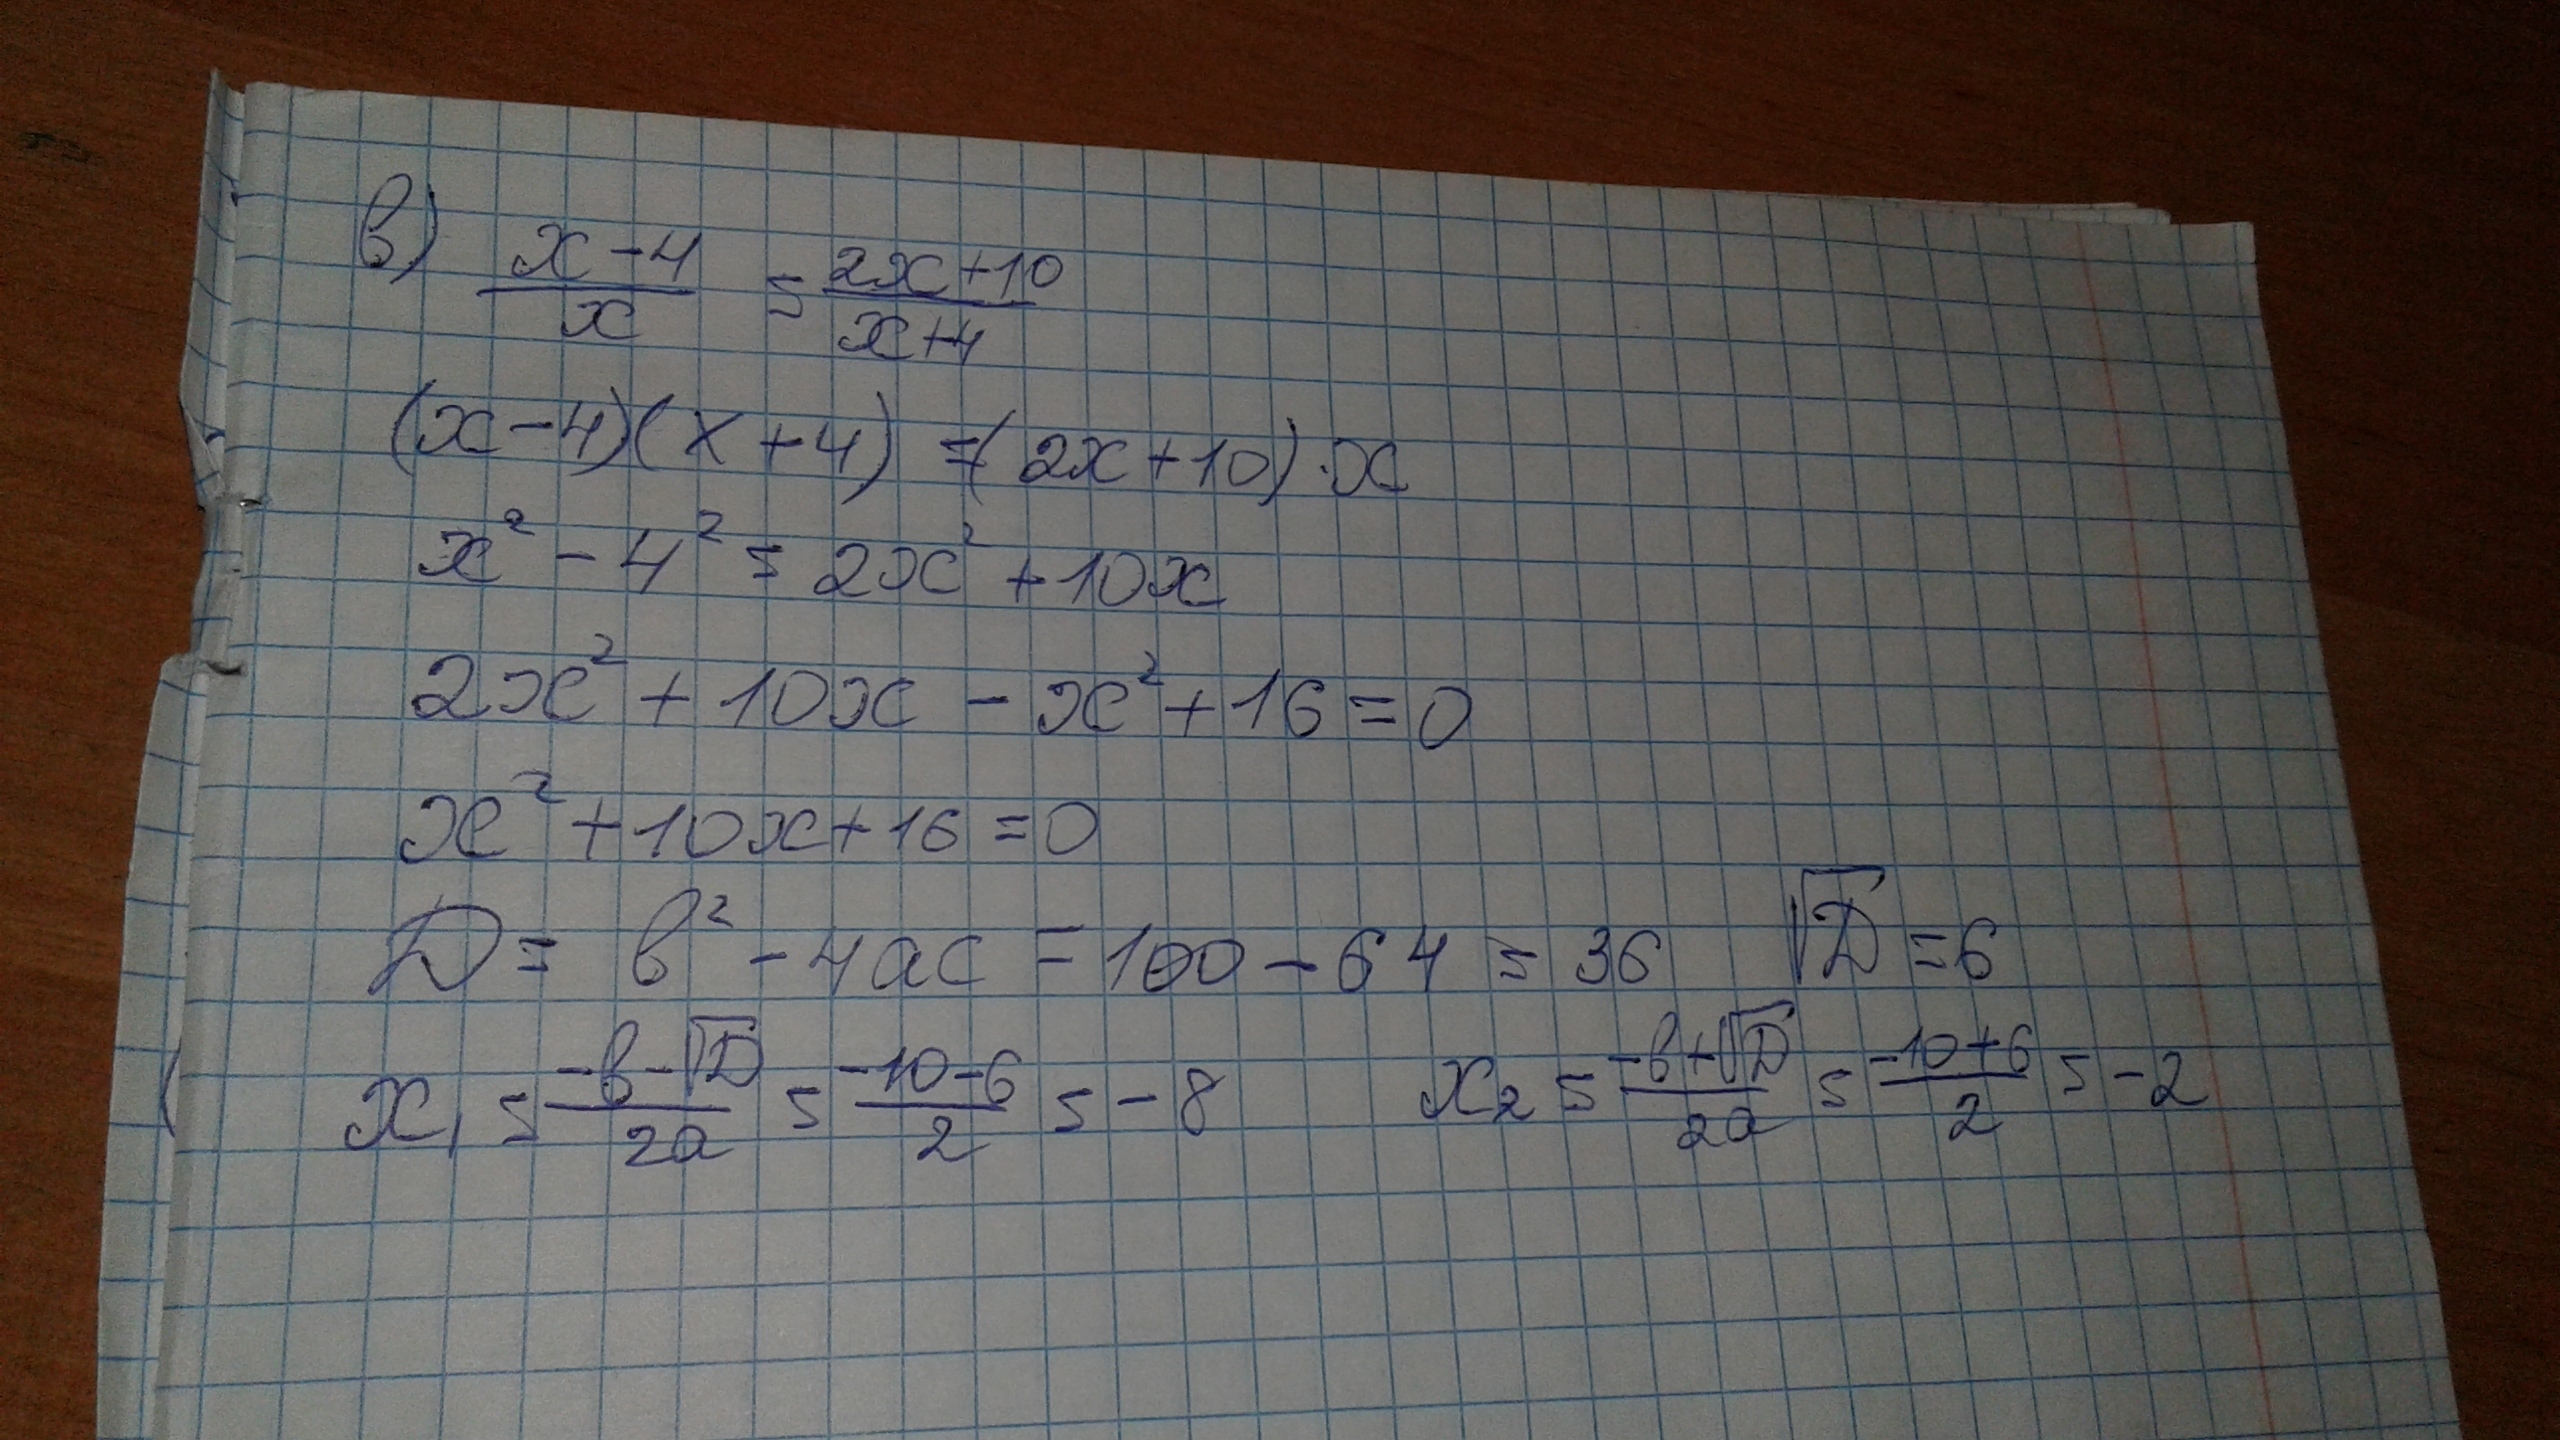 в) (x-4)/x = (2x+10)/(x+4)
(x-4)(x+4) = (2x+10)·x
x² - 4² = 2x² + 10x
2x² + 10x - x² + 16 = 0
x² + 10x + 16 = 0
D = b² - 4ac = 100 - 64 = 36 √D = 6
x₁ = (-b-√D)/2a = (-10-6)/2 = -8 x₂ = (-b+√D)/2a = (-10+6)/2 = -2